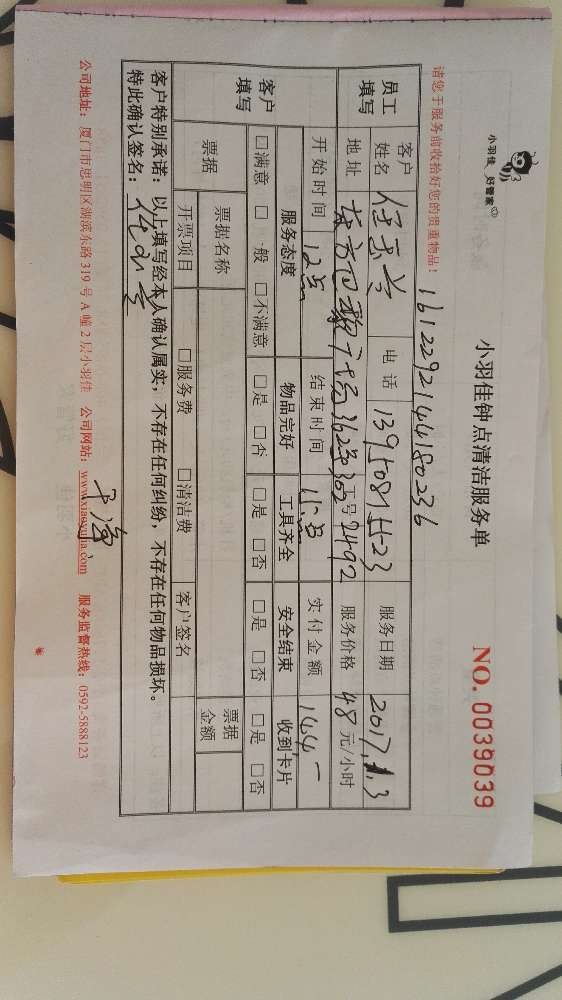 小羽佳 好管家
小羽佳钟点清洁服务单
NO. 0039039
请您于服务前收拾好您的贵重物品！ 161229214480236
员工填写
客户姓名 电话 13950815523 服务日期 2017.1.3
地址 工号 2492 服务价格 48 元/小时
开始时间 12点 结束时间 15点 实付金额 144一
客户填写
服务态度 物品完好 工具齐全 安全结束 收到卡片
□满意 □一般 □不满意 □是 □否 □是 □否 □是 □否 □是 □否
票据 票据名称 票据金额
开票项目 □服务费 □清洁费 客户签名
客户特别承诺：以上填写经本人确认属实，不存在任何纠纷，不存在任何物品损坏。
特此确认签名：
公司地址：厦门市思明区湖滨东路319号A幢2层小羽佳 公司网站：www.xiaoyujia.com 服务监督热线：0592-5888123